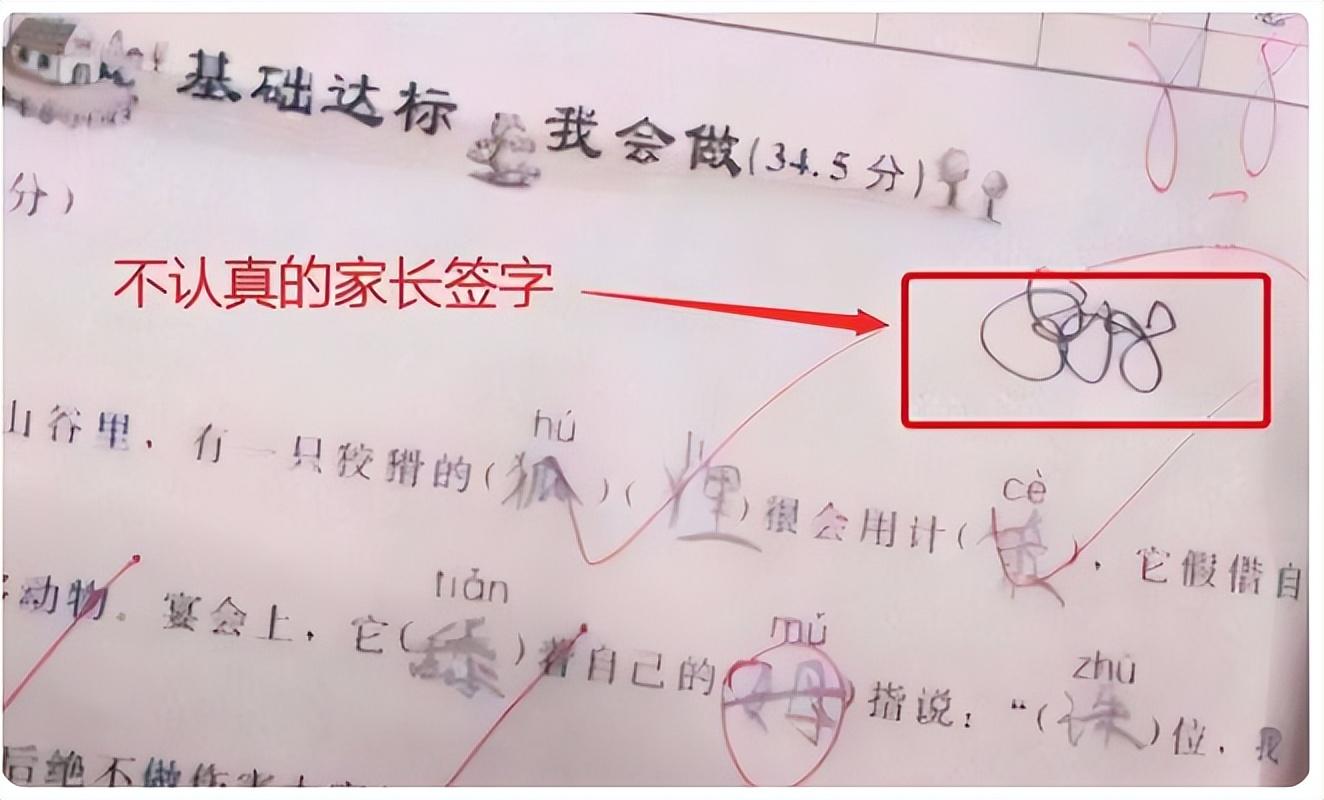 基础达标 我会做(34.5分)
88
分)
不认真的家长签字
hú lí cè
山谷里,有一只狡猾的(狐)(狸)很会用计(策),它假借自
tiǎn mǔ zhū
动物。宴会上,它(舔)着自己的(姆)指说:“(诛)位,我
后绝不做伤